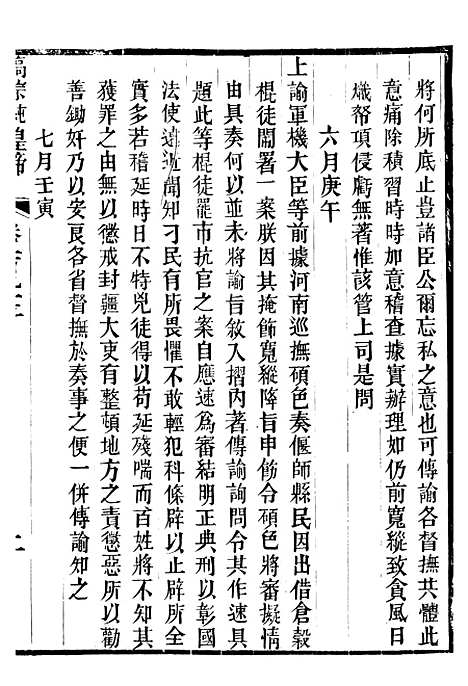 將何所底止豈諸臣公爾忘私之意也可傳諭各督撫共體此
意痛除積習時時加意稽查據實辦理如仍前寬縱致貪風日
熾帑項侵虧無著惟該管上司是問
六月庚午
上諭軍機大臣等前據河南巡撫碩色奏偃師縣民因出借倉穀
棍徒鬧署一案朕因其掩飾寬縱降旨申飭令碩色將審擬情
由具奏何以並未將諭旨入摺內著傳諭詢問令其作速具
題此等棍徒罷市抗官之案自應速為審結明正典刑以彰國
法使遠近聞知刁民有所畏懼不敢輕犯科條辟以止辟所全
實多若稽延時日不特兇徒得以苟延殘喘而百姓將不知其
獲罪之由無以懲戒封疆大吏有整頓地方之責懲惡所以勸
善鋤奸乃以安良各省督撫於奏事之便一併傳諭知之
七月壬寅
高宗純皇帝